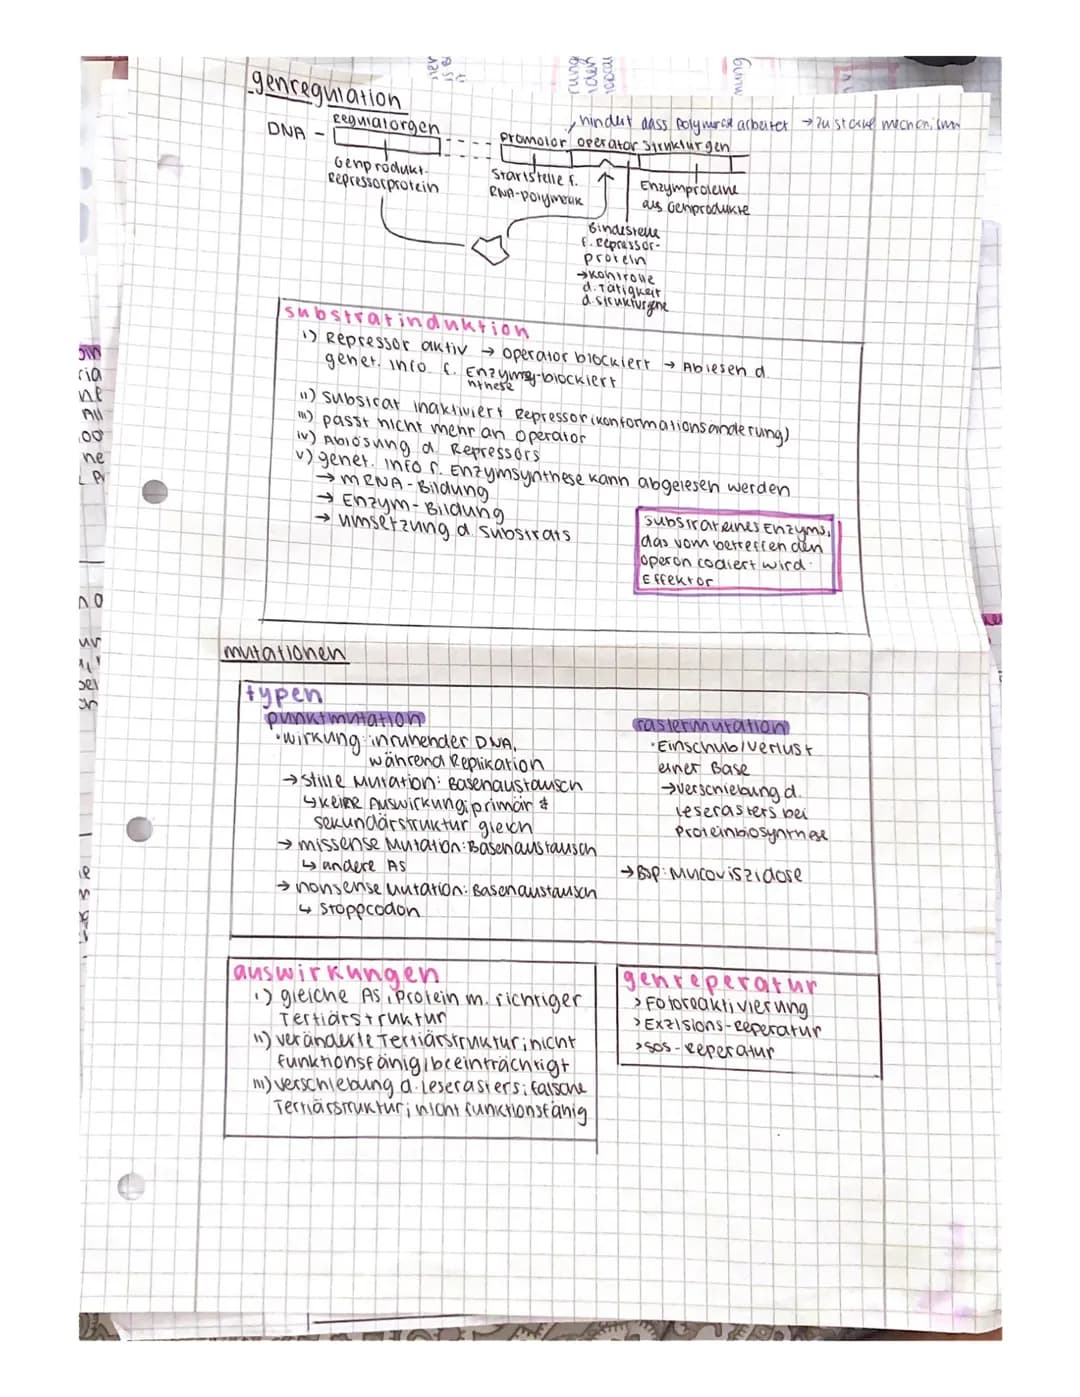 genregulation
Regulatorgen
DNA -
hindert dass Polymerase arbeitet → zu starke mechanism
promotor operator Strukturgen
Genprodukt:
Repressorprotein
Startstelle f.
RNA-polymerase
Enzymproteine
als Genprodukte
Bindestelle
f. Repressor-
protein
→kontrolle
d. Tätigkeit
d. strukturgene
substratinduktion
i) Repressor aktiv → operator blockiert → Ablesen d.
genet. info. f. Enzymsy-blockiert
nthese
ii) substrat inaktiviert Repressor (konformationsänderung)
iii) passt nicht mehr an operator
iv) Ablösung d. Repressors
v) genet. info f. Enzymsynthese kann abgelesen werden
→ mRNA-Bildung
→ Enzym-Bildung
→ umsetzung d. substrats
substrat eines Enzyms,
das vom betreffenden
operon codiert wird:
Effektor
mutationen
typen
punktmutation
·wirkung: in ruhender DNA,
während Replikation
→ stille Mutation: Basenaustausch
↳ keine Auswirkung; primär &
sekundärstruktur gleich
→ missense Mutation: Basenaustausch
↳ andere AS
→ nonsense Mutation: Basenaustausch
↳ stoppcodon
rastermutation
·Einschub/verlust
einer Base
→verschiebung d.
leserasters bei
Proteinbiosynthese
→ Bsp: Mucoviszidose
auswirkungen
i) gleiche AS, Protein m. richtiger
Tertiärstruktur
ii) veränderte Tertiärstruktur; nicht
funktionsfähig/beeinträchtigt
iii) verschiebung d. leserasters; falsche
Tertiärstruktur; nicht funktionsfähig
genreperatur
> Fotoreaktivierung
> Exzisions-reperatur
> SOS-reperatur